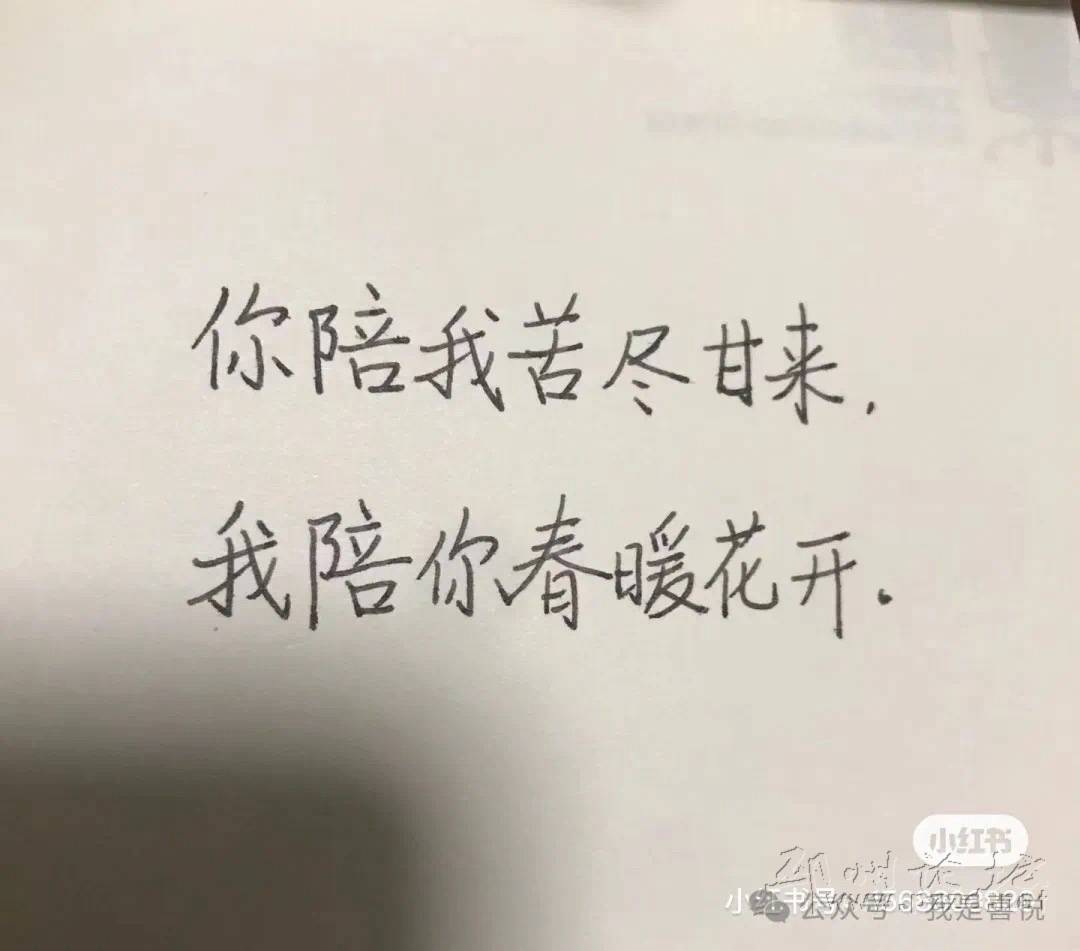 你陪我苦尽甘来,
我陪你春暖花开.
小红书
公众号·我是喜悦